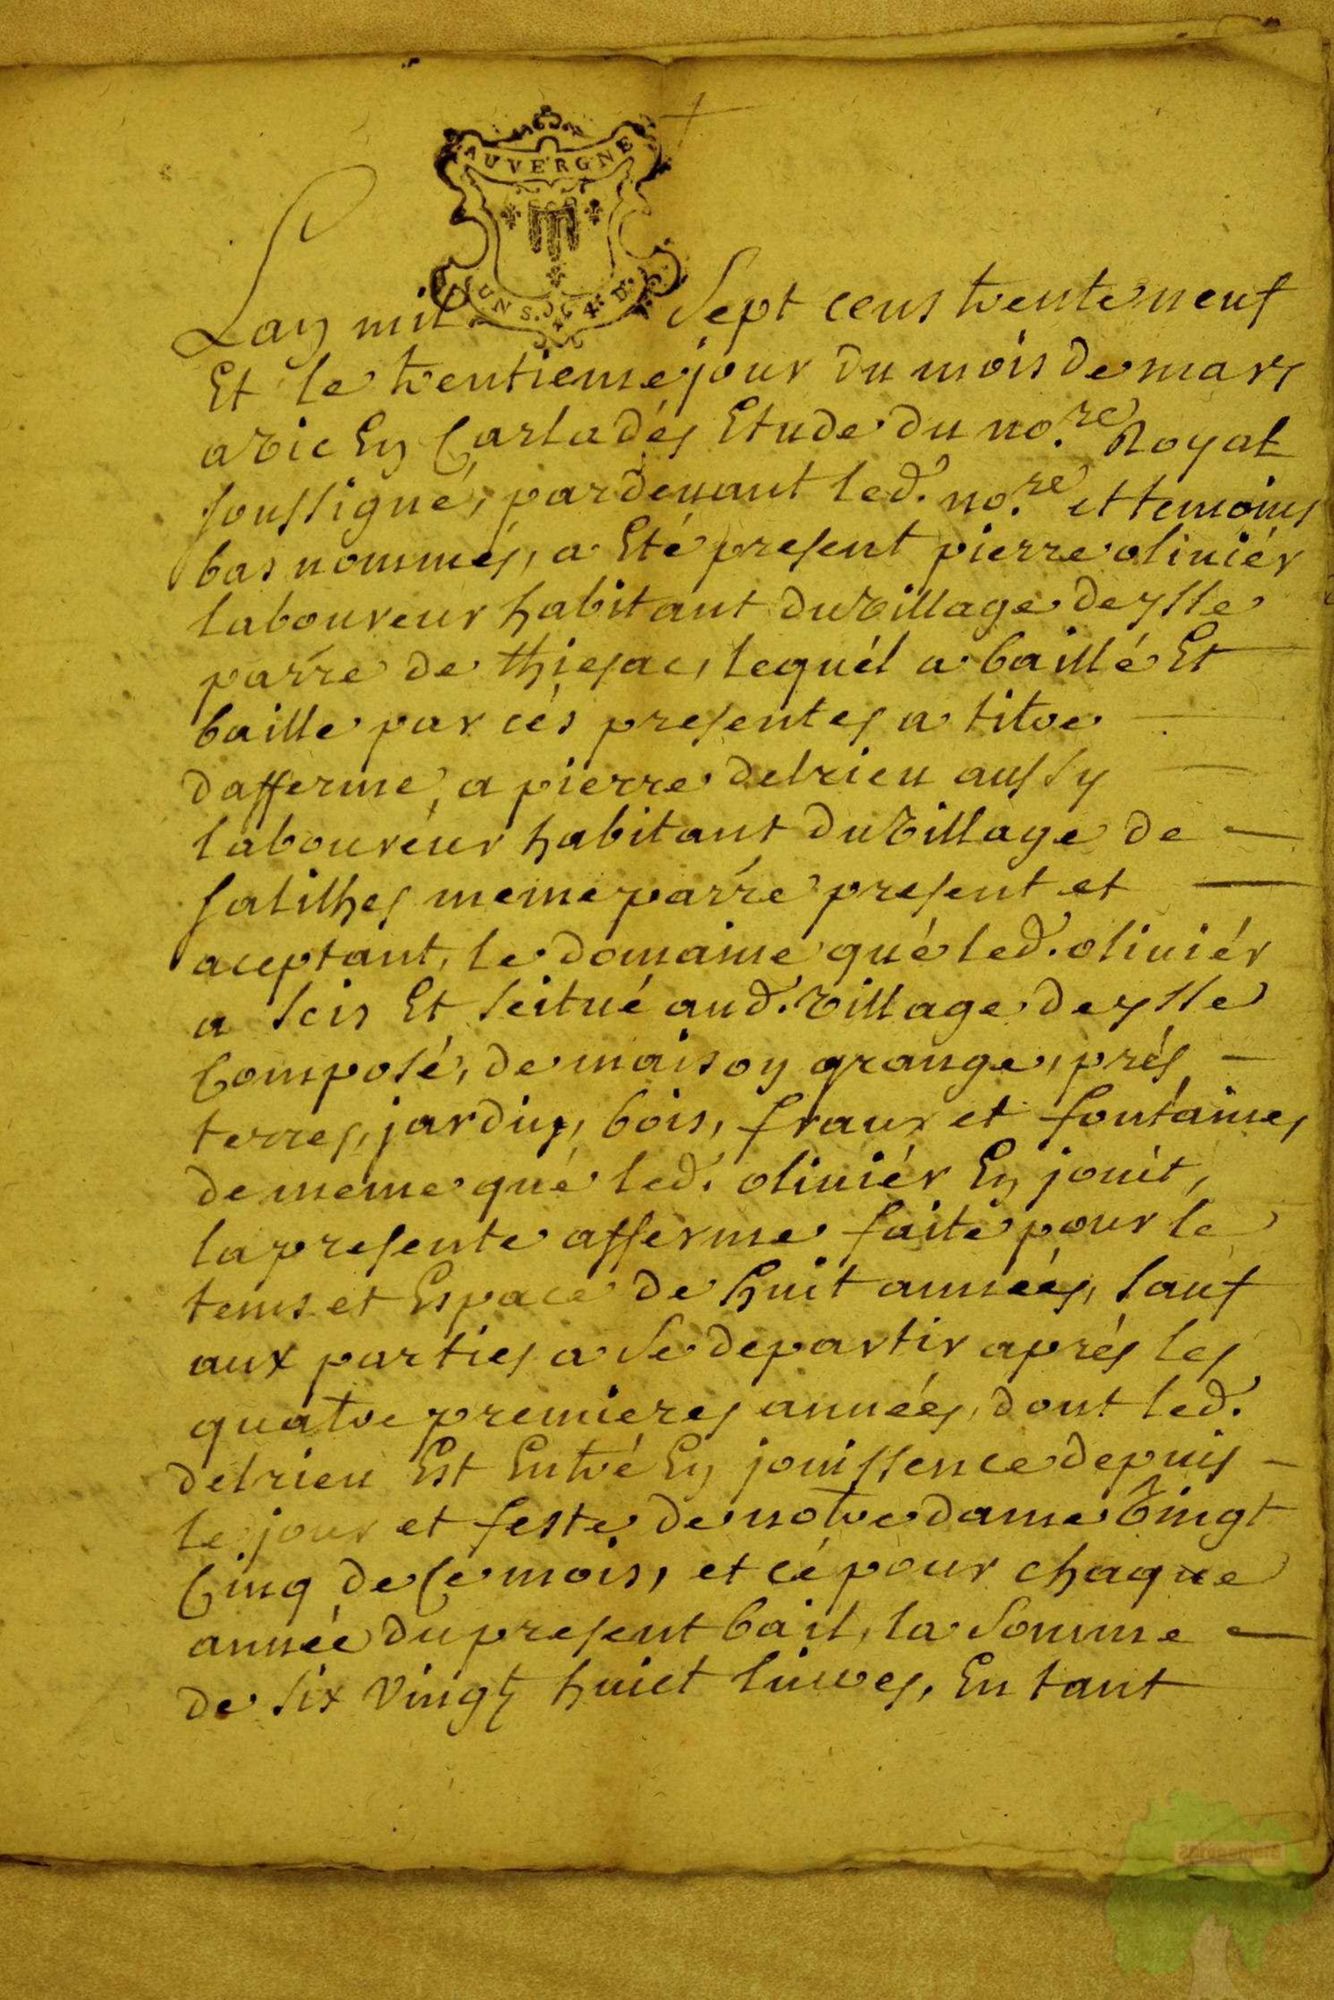 AUVERGNE
UN S. 4 D.
Lan mil Sept cens trente neuf
Et le trentieme jour du mois de mars
a vic En Carladés Etude du no.re Royal
soussigné, pardevant led. no.re et temoins
bas nommés, a Eté present pierre oliviér
laboureur habitant du village deysse
parre de thiesac, lequél a baillé Et
baille par cés presentes a titre
dafferme, a pierre delrieu aussy
laboureur habitant du village de
salilhes meme parre present et
aceptant, le domaine qué led. oliviér
a scis Et scitué aud. village deysse
Composé, de maison grange, prés
terres, jardin, bois, fraux et fontaines
de meme qué led. oliviér En jouit,
la presente afferme faite pour le
tems et Espace de huit années, sauf
aux parties a se departir aprés les
quatre premieres années, dont led.
delrieu Est Entré En jouissence depuis
le jour et feste de notre dame vingt
Cinq de Ce mois, et cé pour chaque
année du present bail, la somme
de six vingt huict livres, En tant